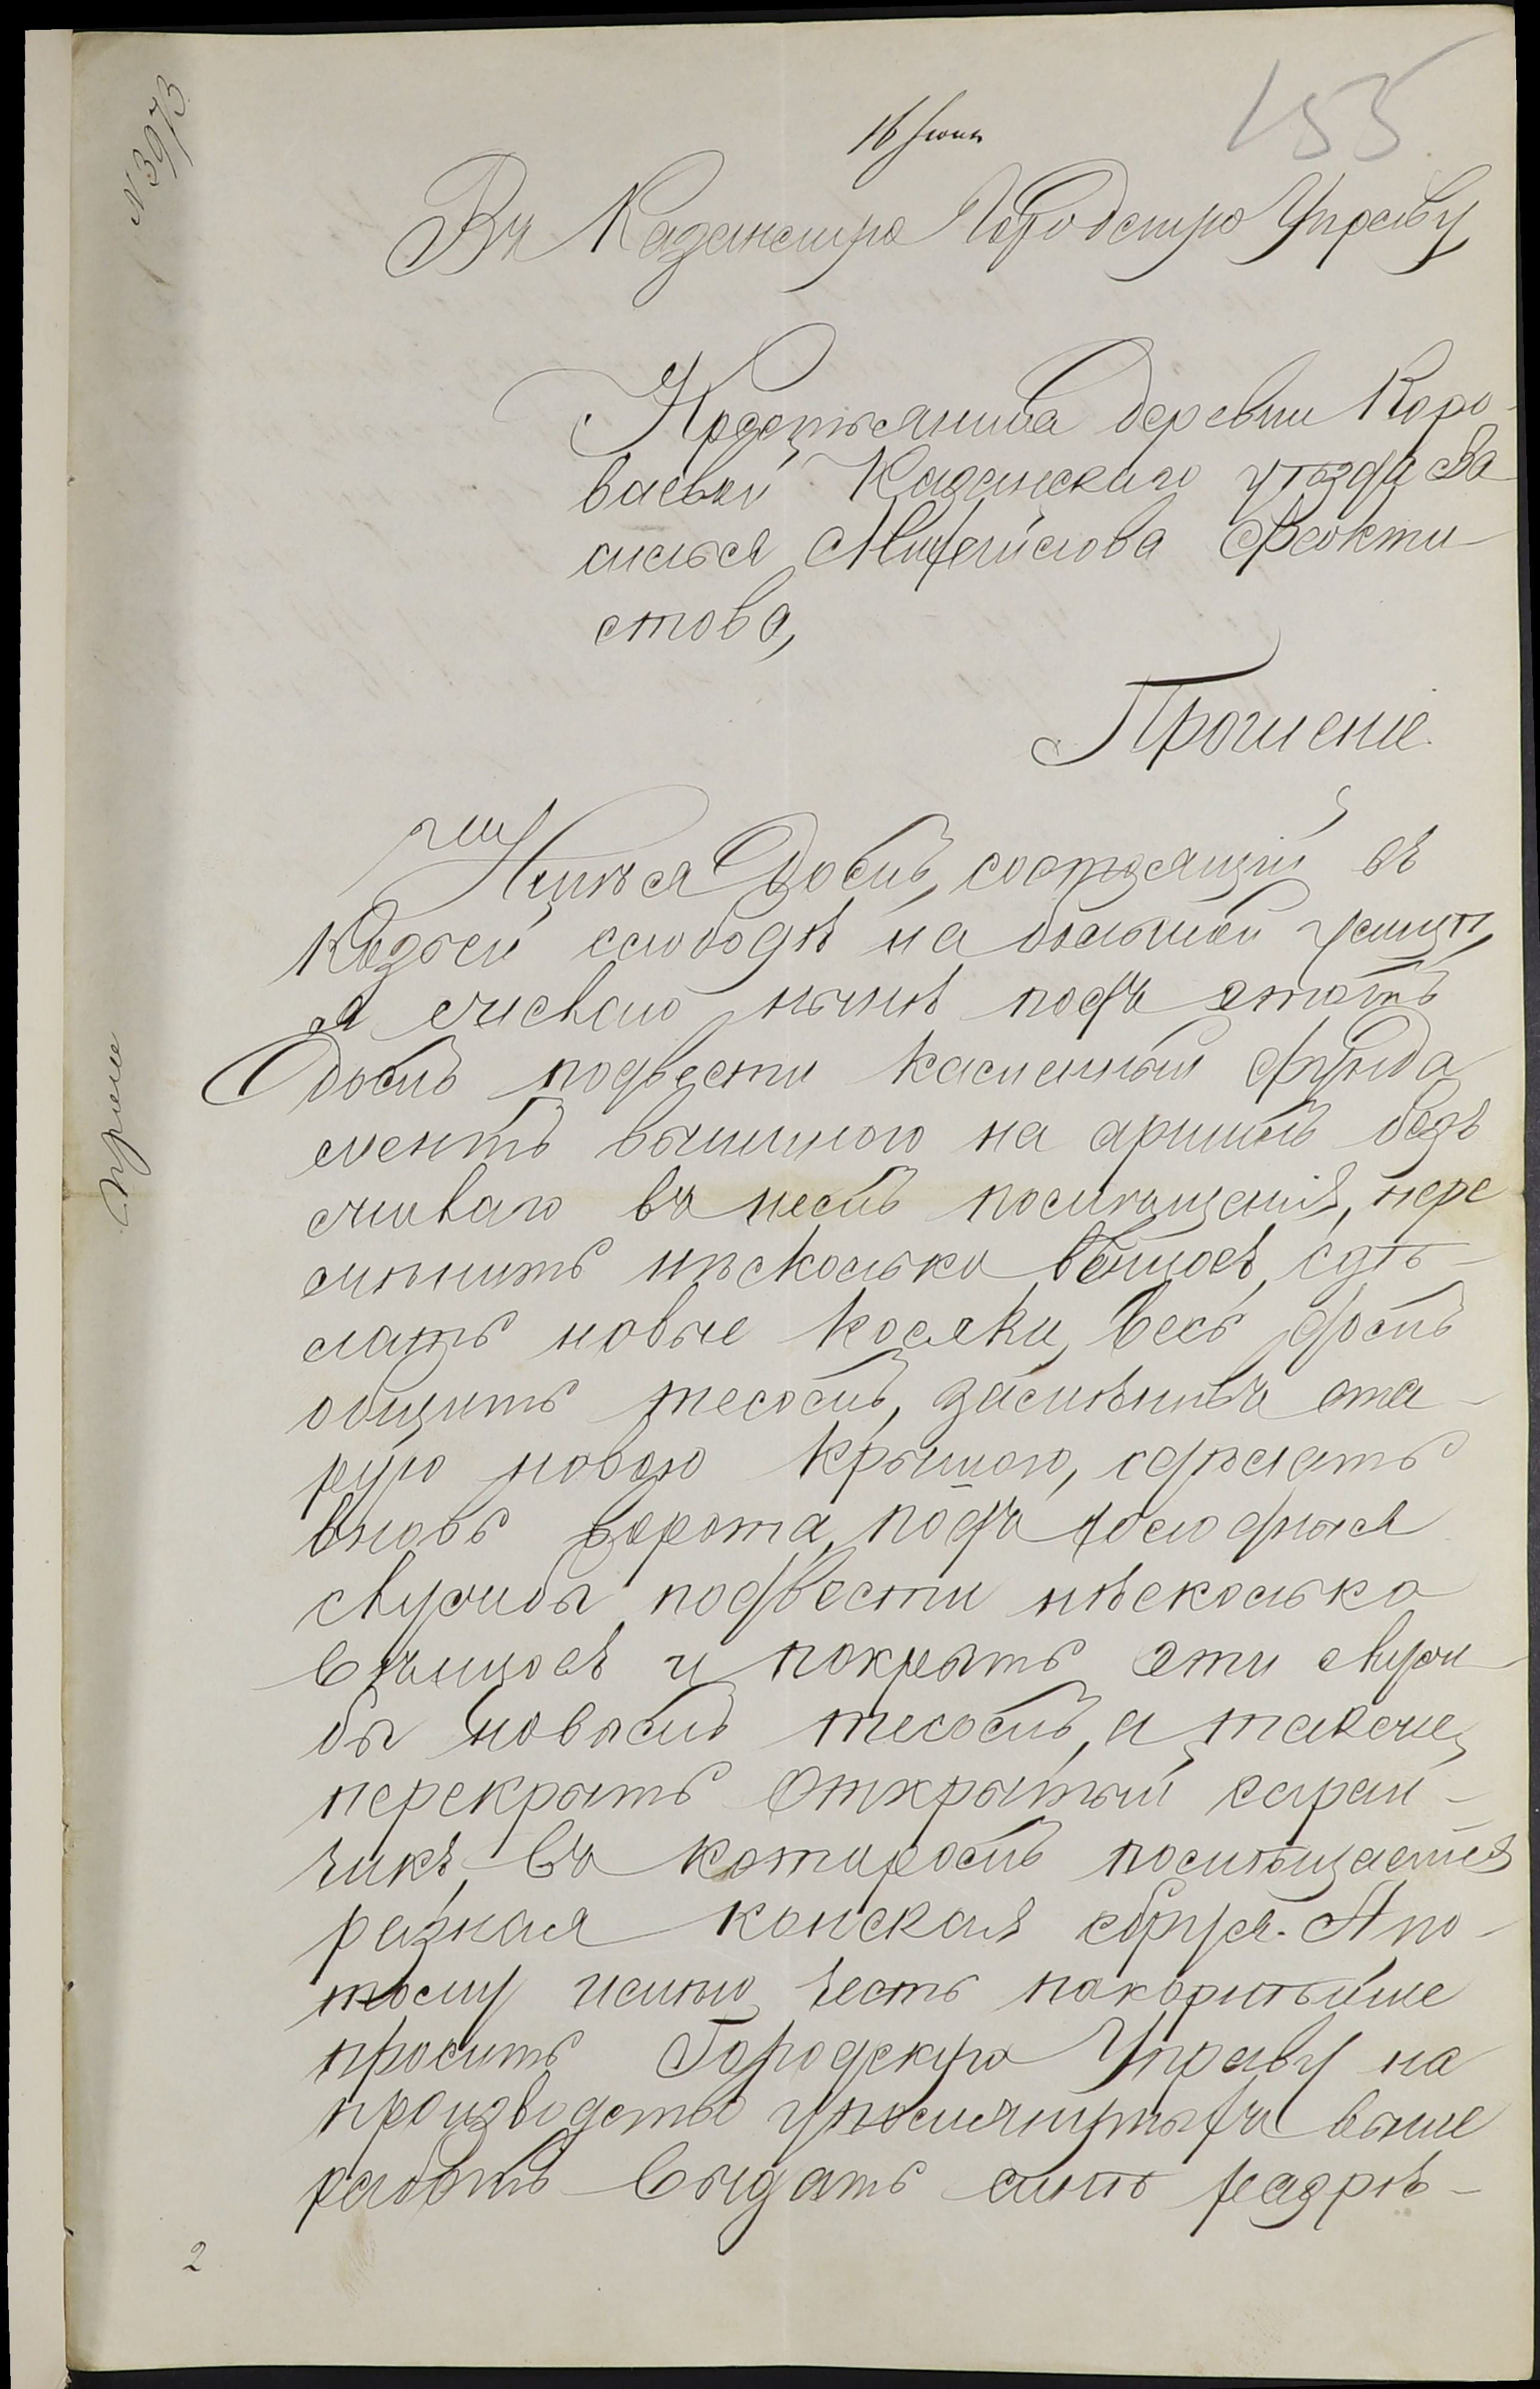 № 3973
16 Іюня
155
Въ Казанскую Городскую Управу
Крестьянина деревни Коро-
ваевой Казанскаго уѣзда Ва
силья Михайлова Феокти-
стова,
Прошеніе.
Купивъ домъ, состоящій въ
Козьей слободѣ на большой улицѣ,
я желаю нынѣ подъ этотъ
домъ подвести каменный фунда
ментъ вышиною на аршинъ безъ
жилаго въ немъ помѣщенія, пере
мѣнить нѣсколько вѣнцовъ, сдѣ-
лать новые косяки, весь домъ
обшить тесомъ, замѣнивъ ста-
рую новою крышою, сдѣлать
вновь ворота, подъ холодныя
службы подвести нѣсколько
вѣнцовъ и покрыть эти служ-
бы новымъ тесомъ, а также
перекрыть открытый сарай-
чикъ, въ которомъ помѣщается
разная конская сбруя. А по-
тому имѣю честь покорнѣйше
просить Городскую Управу на
производство упомянутыхъ выше
работъ выдать мнѣ разрѣ-
2